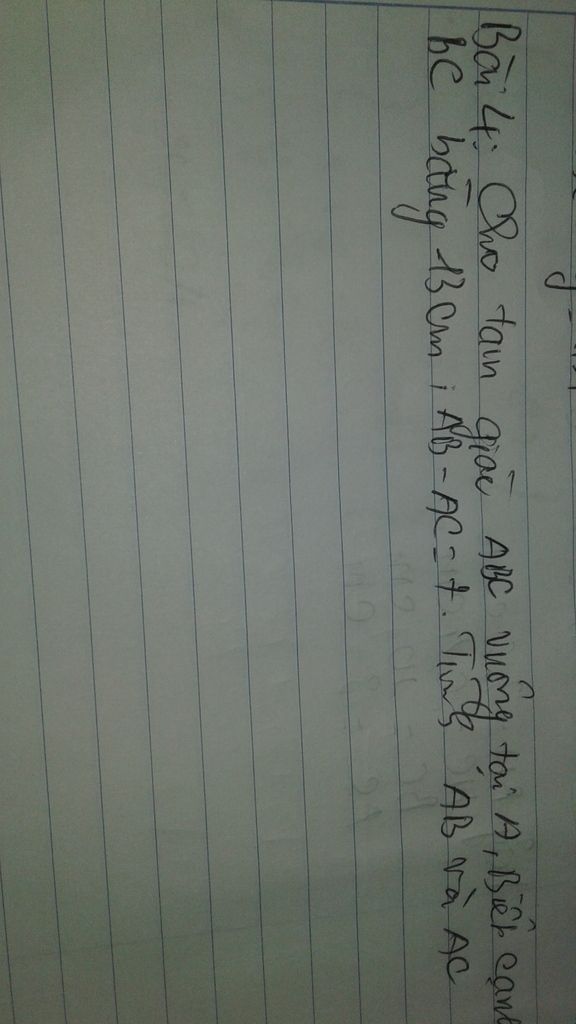 Bài 4: Cho tam giác ABC vuông tại A, Biết cạnh
BC bằng 13cm ; AB - AC = 7. Tính AB và AC